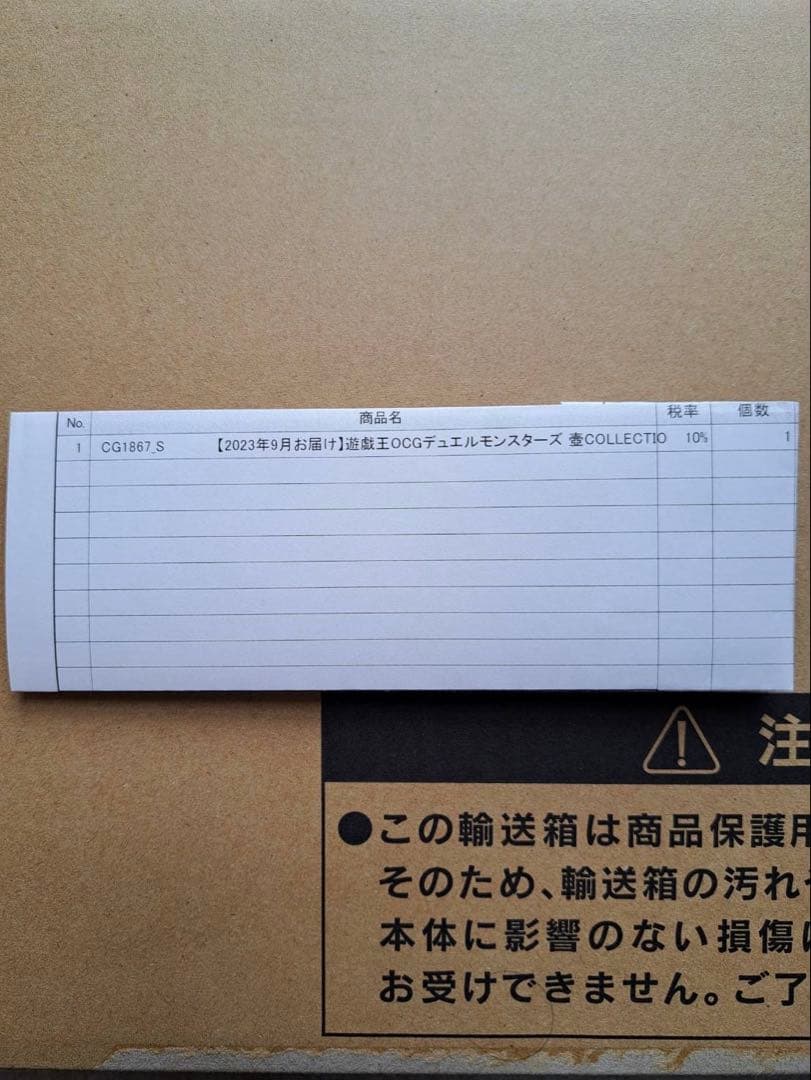 No. 商品名 税率 個数
1 CG1867_S 【2023年9月お届け】遊戯王OCGデュエルモンスターズ 壺COLLECTIO 10% 1
注
●この輸送箱は商品保護用
そのため、輸送箱の汚れや
本体に影響のない損傷に
お受けできません。ご了